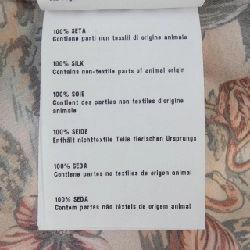 100% SETA
Contiene parti non tessili di origine animale
100% SILK
Contains non-textile parts of animal origin
100% SOIE
Contient des parties non textiles d'origine
animale
100% SEIDE
Enthält nichttextile Teile tierischen Ursprungs
100% SEDA
Contiene partes no textiles de origen animal
100% SEDA
Contem partes não têxteis de origem animal